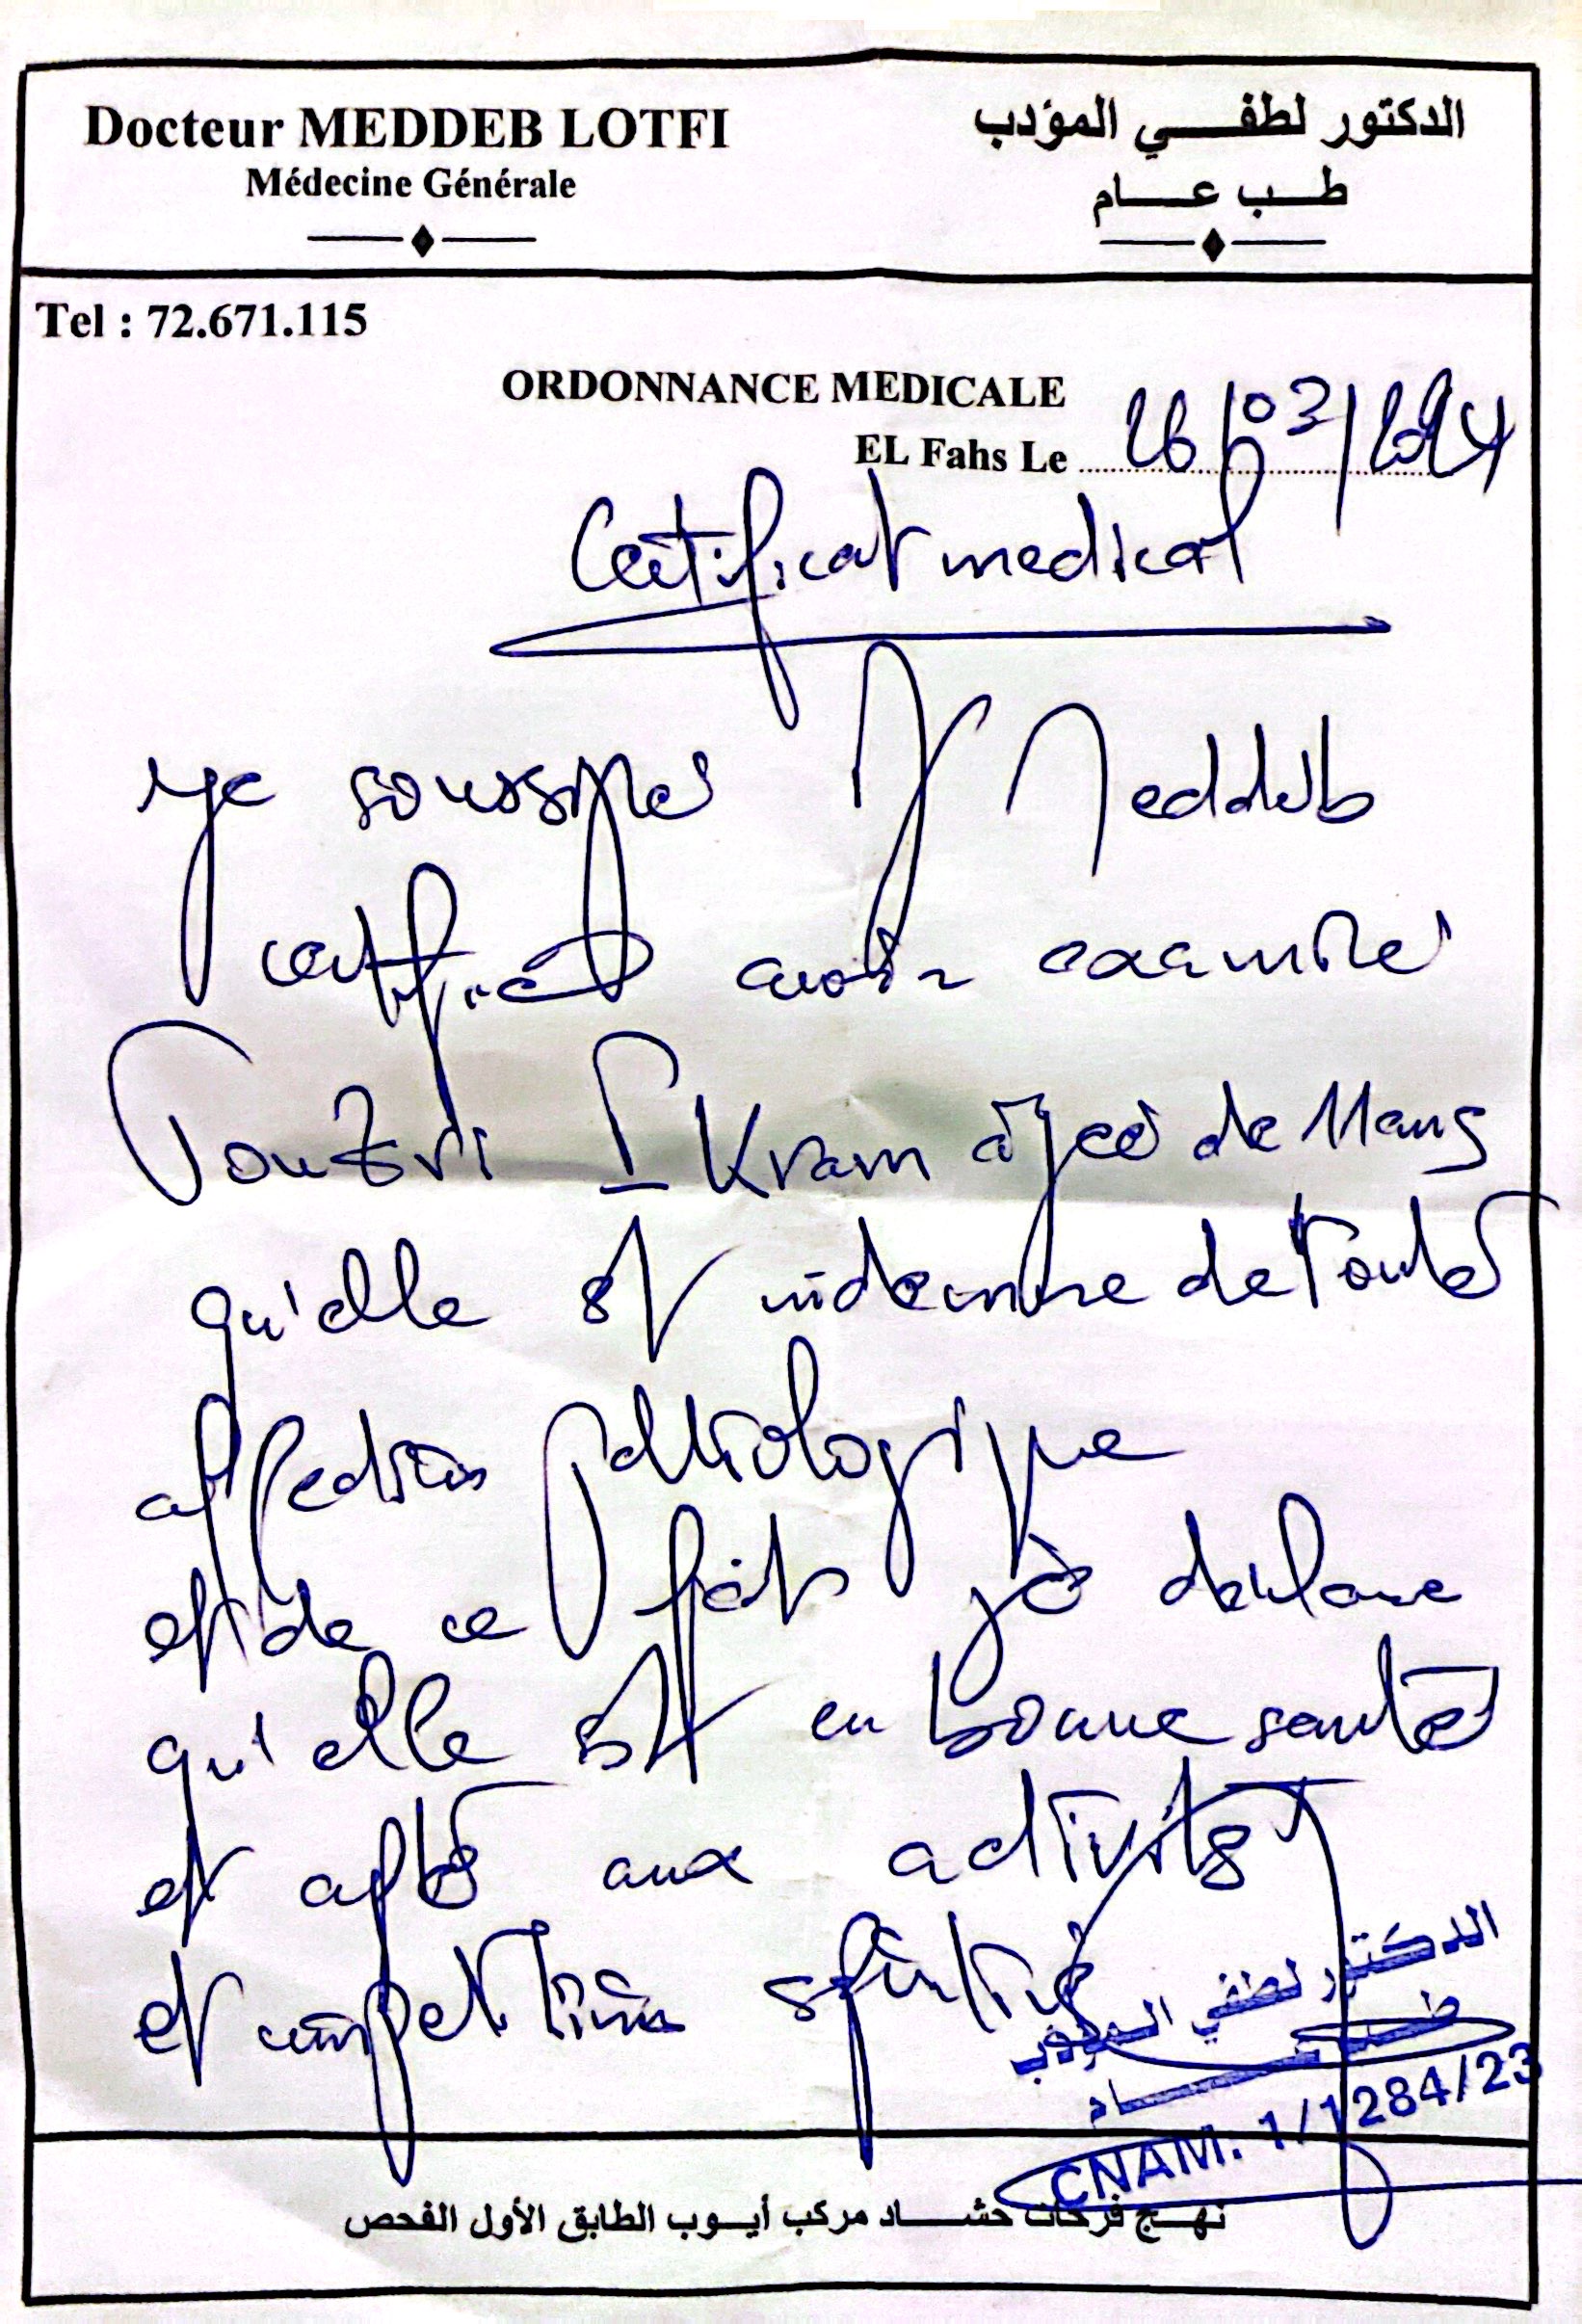 Docteur MEDDEB LOTFI
Médecine Générale
الدكتور لطفي المؤدب
طب عام
Tel : 72.671.115
ORDONNANCE MEDICALE
EL Fahs Le 26/03/2024
Certificat medical
Je soussigné Dr Meddeb
certifie avoir examiné
Touzri Ikram âgée de 11 ans
qu'elle est indemne de toutes
affections pathologique
et de ce fait je déclare
qu'elle est en bonne santé
et apte aux activités
et compétition sportive
الدكتور لطفي المؤدب
طب عام
CNAM. 1/1284/23
نهج فرحات حشاد مركب أيوب الطابق الأول الفحص